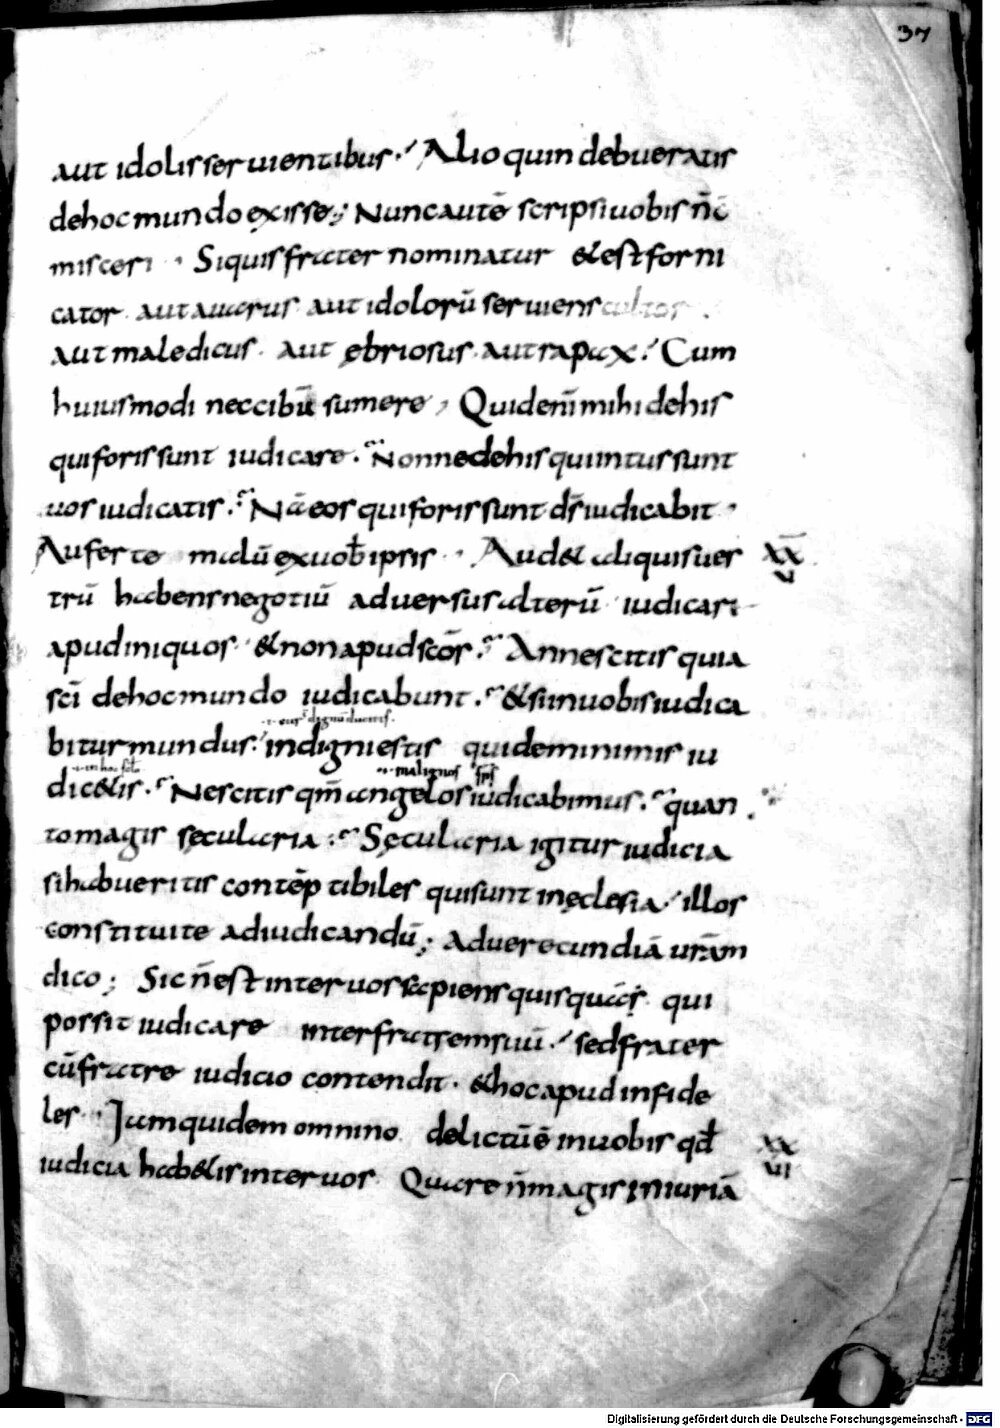 37
aut idolis seruientibus. Alioquin debueratis
dehoc mundo exisse; Nunc autē scripsi uobis n̄ cō
misceri. Siquis frater nominatur & est forni
cator aut auarus aut idolorū seruiens cultor.
aut maledicus. aut ębriosus. aut rapax. Cum
huiusmodi nec cibū sumere, Quid enī mihi dehis
qui foris sunt iudicare. Nonne dehis qui intus sunt
uos iudicatis. Nā eos qui foris sunt ds̄ iudicabit.
Auferte malū ex uob̄ ipsis. Aud& aliquis ues xx̄
trū habens negotiū aduersus alterū iudicari ui
apud iniquos. & non apud scōs. An nescitis quia
scī dehoc mundo iudicabunt. & si in uobis iudica
bitur mundus. indigni estis qui de minimis iu
malignos sp̄s
dic&is. Nescitis qm̄ angelos iudicabimus. quan
to magis sęcularia. Sęcularia igitur iudicia
si habueritis contēptibiles qui sunt in ęclesia. illos
constituite ad iudicandū; Ad uerecundiā urām
dico; Sic n̄ est inter uos sapiens quisquā qui
possit iudicare inter fratrem suū. sed frater
cū fratre iudicio contendit. & hoc apud infide
les. Jam quidem omnino delictū ē in uobis qd̄ xx
iudicia hab&is inter uos. Quare n̄ magis iniuriā uii
Digitalisierung gefördert durch die Deutsche Forschungsgemeinschaft - DFG